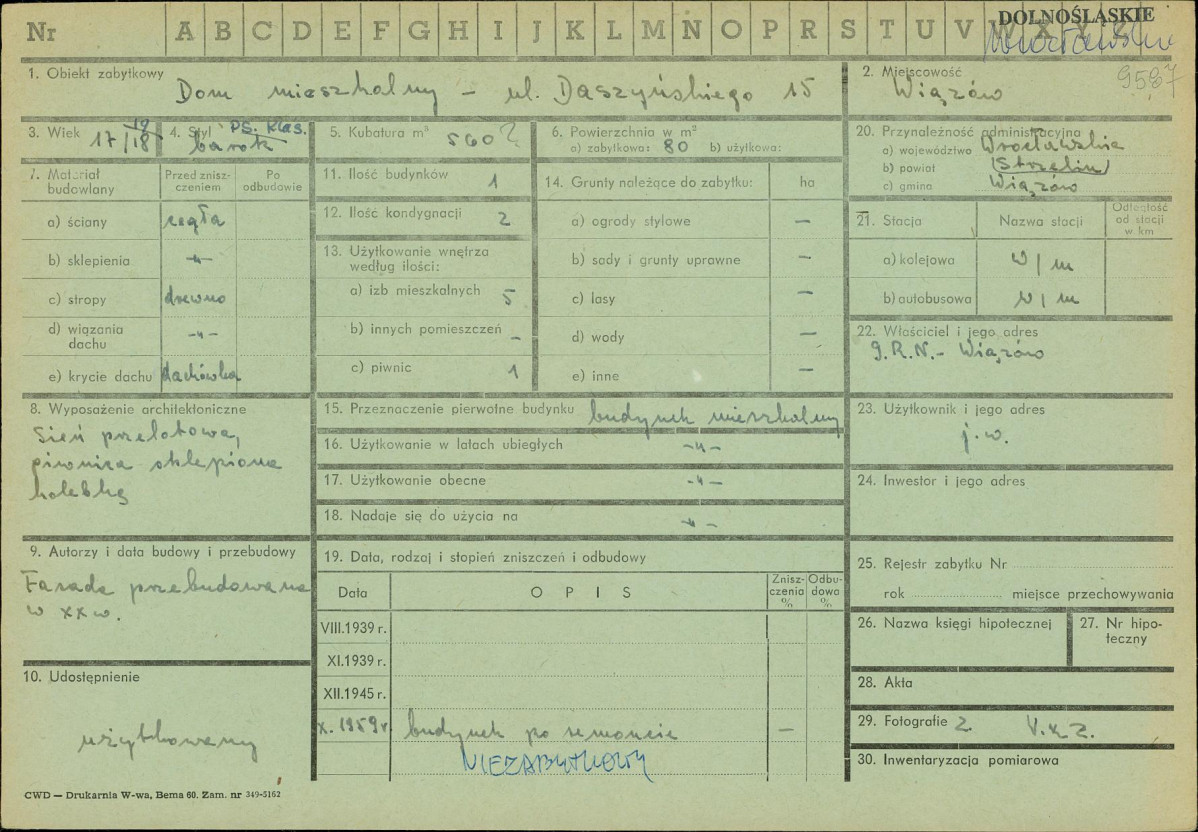 Nr A B C D E F G H I J K L M N O P R S T U V W X Y Z
DOLNOŚLĄSKIE
Wrocławskie
9587
1. Obiekt zabytkowy
Dom mieszkalny – ul. Daszyńskiego 15
2. Miejscowość
Wiązów
3. Wiek 17/18 19
4. Styl PS. klas.
barok
5. Kubatura m³ 560?
6. Powierzchnia w m²
a) zabytkowa: 80 b) użytkowa:
20. Przynależność administracyjna
a) województwo Wrocławskie
b) powiat (Strzelin)
c) gmina Wiązów
7. Materiał budowlany
Przed zniszczeniem
Po odbudowie
a) ściany cegła
b) sklepienia -"-
c) stropy drewno
d) wiązania dachu -"-
e) krycie dachu dachówka
11. Ilość budynków 1
12. Ilość kondygnacji 2
13. Użytkowanie wnętrza
według ilości:
a) izb mieszkalnych 5
b) innych pomieszczeń –
c) piwnic 1
14. Grunty należące do zabytku: ha
a) ogrody stylowe –
b) sady i grunty uprawne –
c) lasy –
d) wody –
e) inne –
21. Stacja Nazwa stacji Odległość od stacji w km
a) kolejowa w/m
b) autobusowa w/m
22. Właściciel i jego adres
G.R.N. – Wiązów
8. Wyposażenie architektoniczne
Sień przelotowa,
piwnica sklepiona
kolebką
15. Przeznaczenie pierwotne budynku budynek mieszkalny
16. Użytkowanie w latach ubiegłych -"-
17. Użytkowanie obecne -"-
18. Nadaje się do użycia na -"-
23. Użytkownik i jego adres
j.w.
24. Inwestor i jego adres
9. Autorzy i data budowy i przebudowy
Fasada przebudowana
w XX w.
19. Data, rodzaj i stopień zniszczeń i odbudowy
Data OPIS Zniszczenia % Odbudowa %
VIII.1939 r.
XI.1939 r.
XII.1945 r.
X. 1959 r. budynek po remoncie –
NIEZABYTKOWY
25. Rejestr zabytku Nr
rok miejsce przechowywania
26. Nazwa księgi hipotecznej
27. Nr hipoteczny
28. Akta
29. Fotografie 2 V.k.Z.
30. Inwentaryzacja pomiarowa
10. Udostępnienie
użytkowany
CWD — Drukarnia W-wa, Bema 60. Zam. nr 349-5162